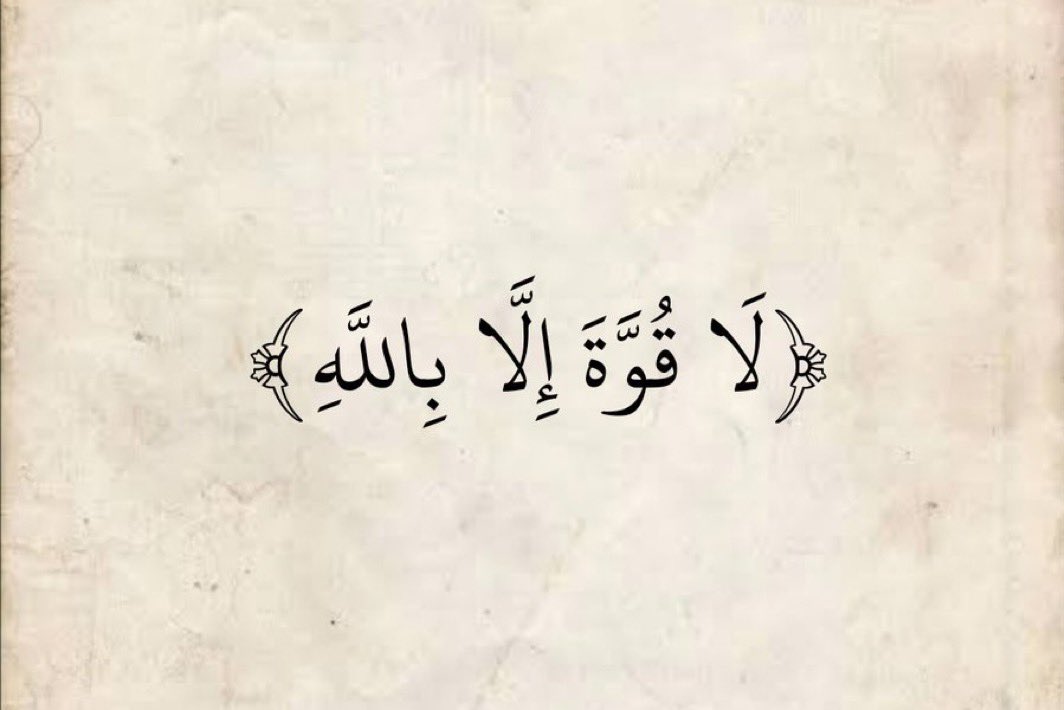 ﴿لَا قُوَّةَ إِلَّا بِاللَّهِ﴾